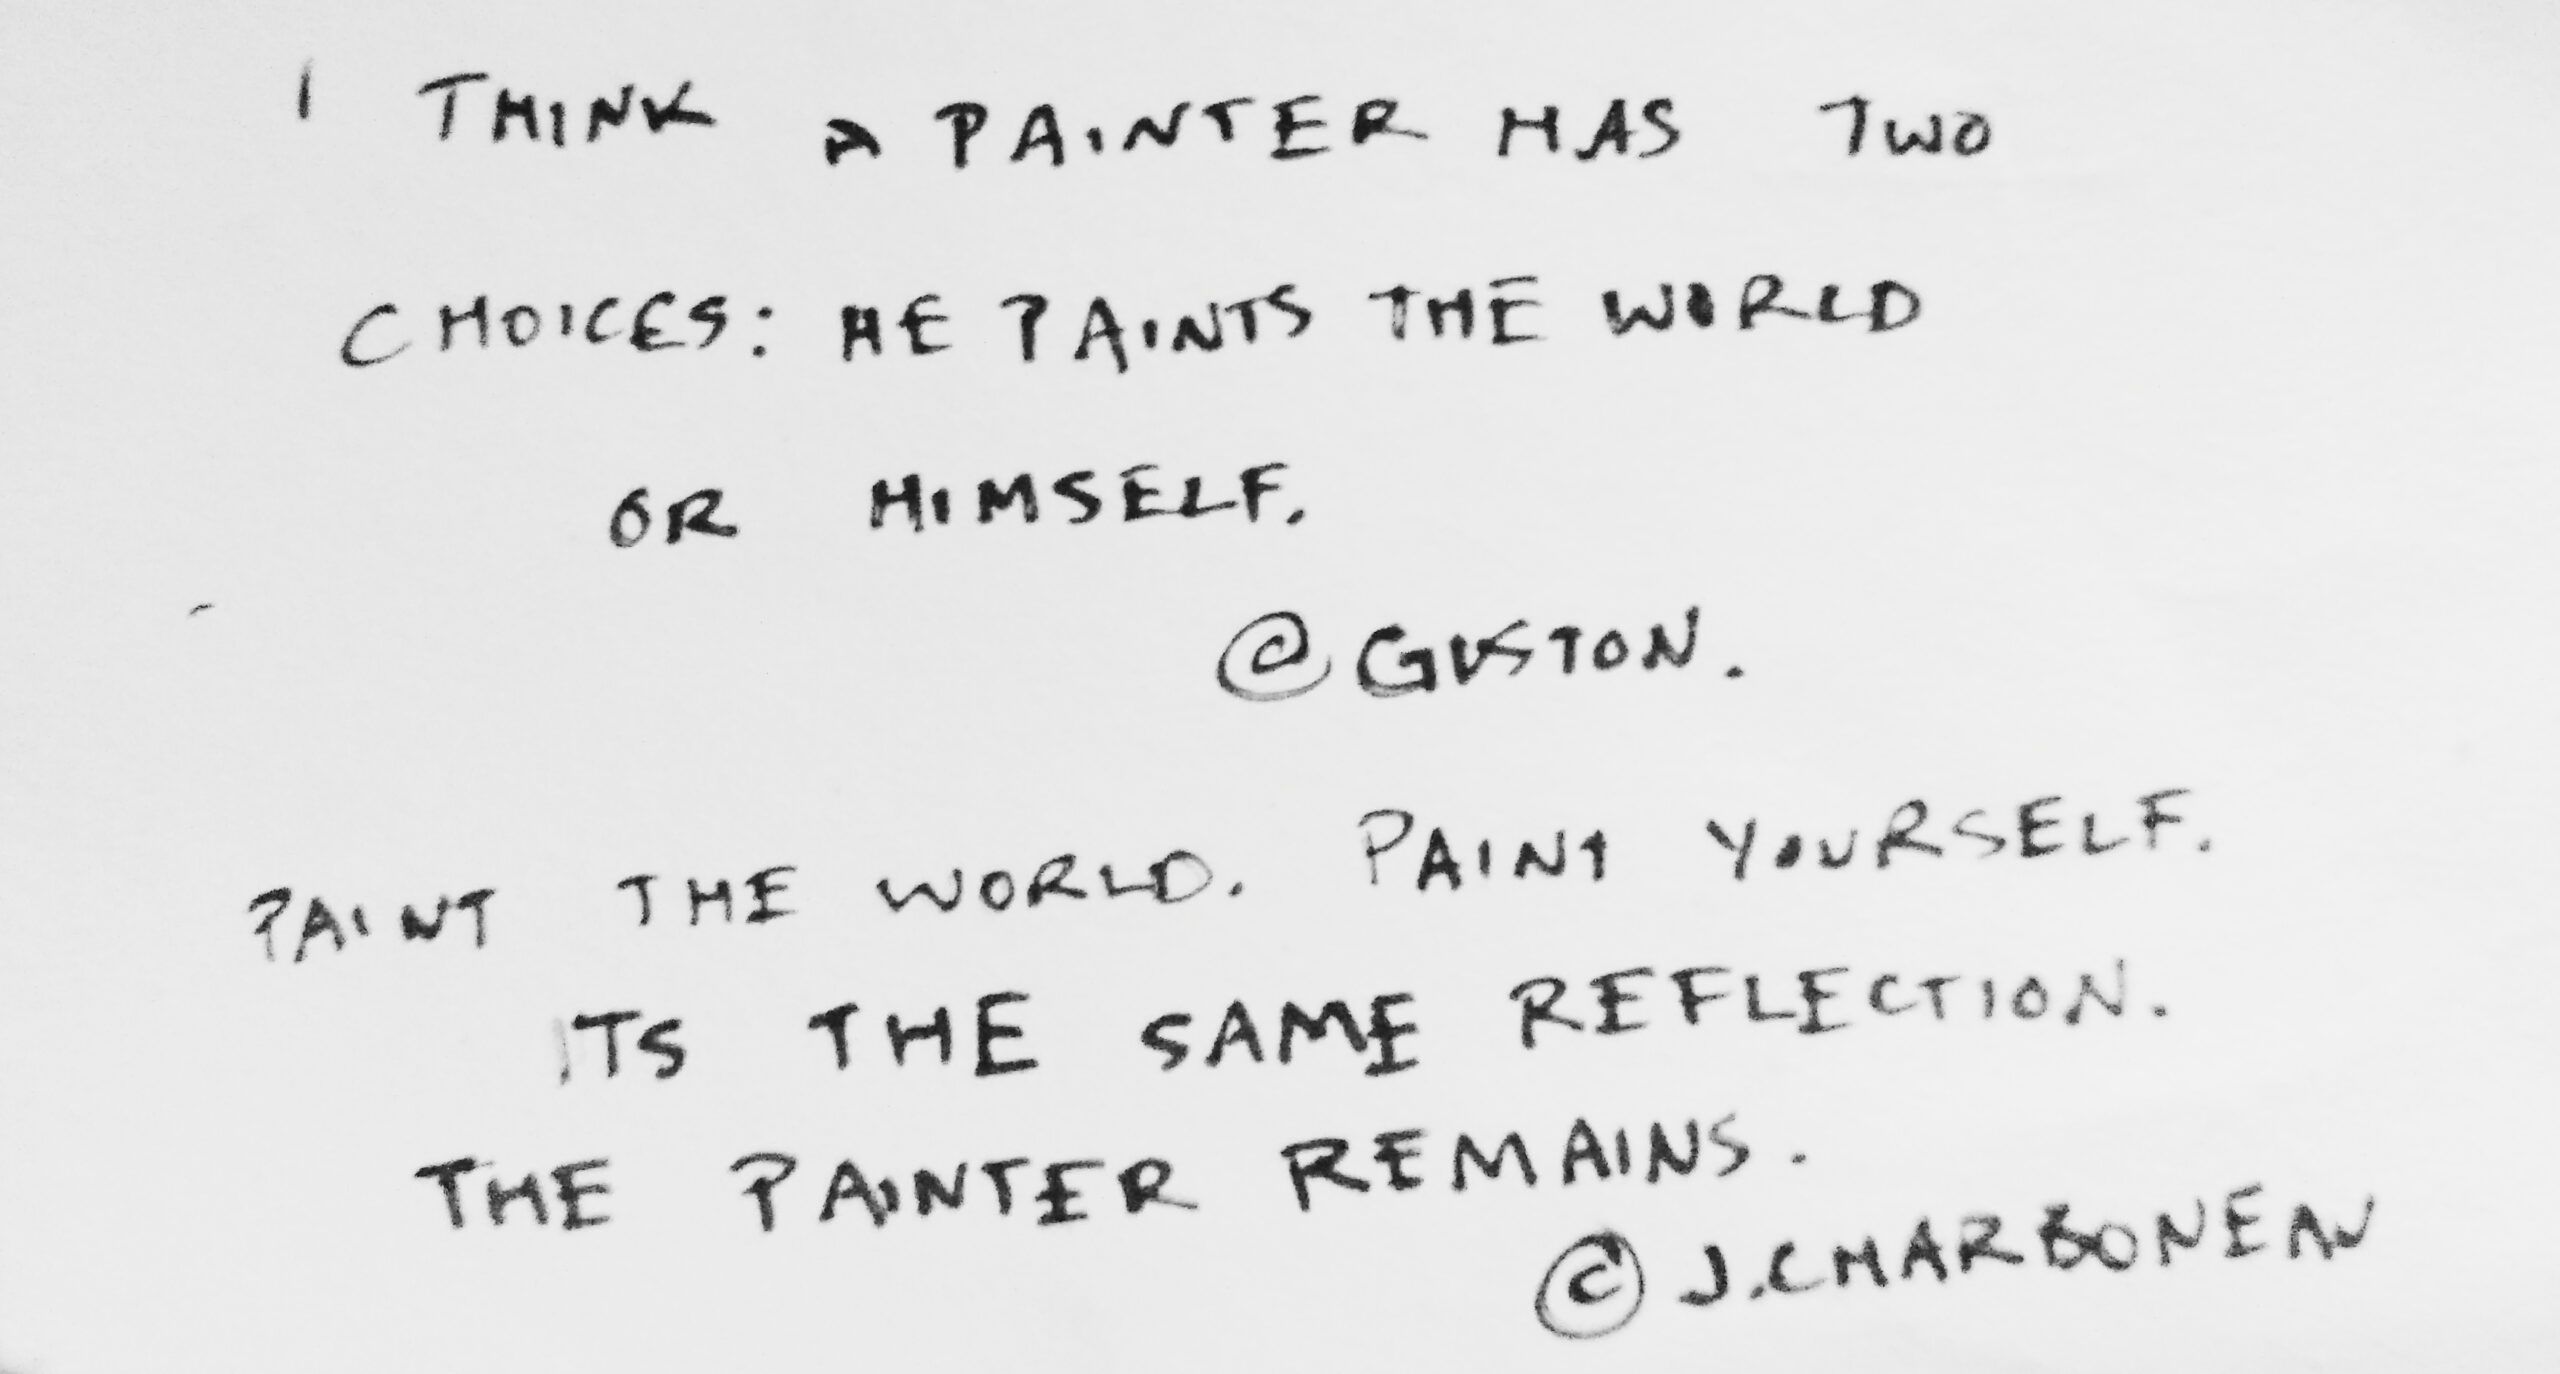 I THINK A PAINTER HAS TWO
CHOICES: HE PAINTS THE WORLD
OR HIMSELF.
@GUSTON.
PAINT THE WORLD. PAINT YOURSELF.
ITS THE SAME REFLECTION.
THE PAINTER REMAINS.
© J.CHARBONEAU